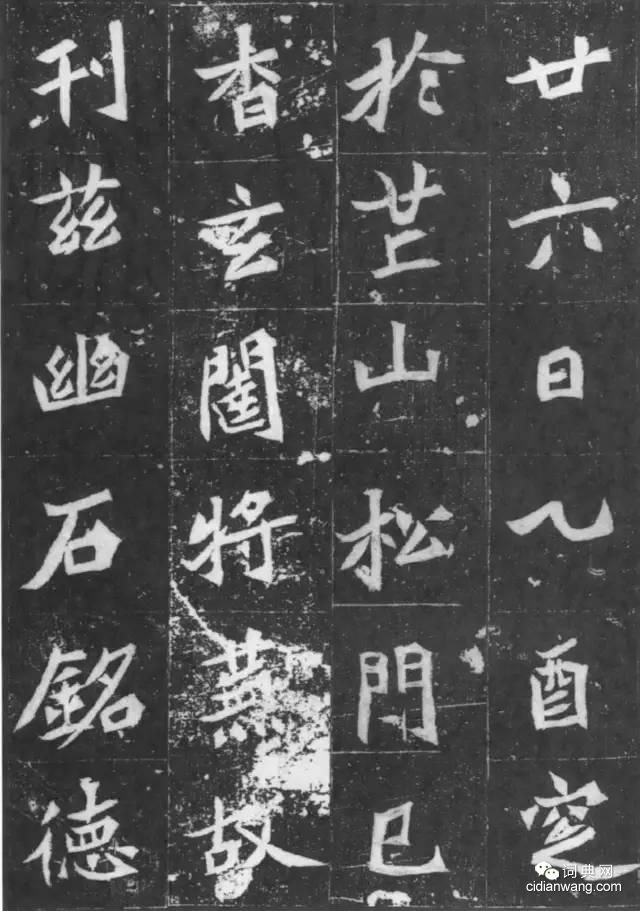 廿六日乙酉窆
於芒山松門已
杳玄閨将蕪故
刊兹幽石銘德
词典网
cidianwang.com